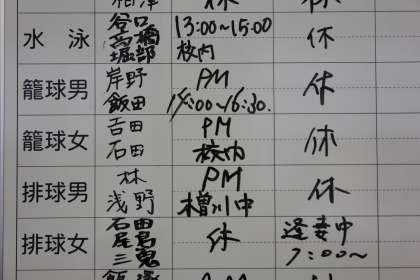 休
水泳
谷口
高橋
堀部
13:00~15:00
校内
休
籠球男
岸野
飯田
PM
14:00~16:30.
休
籠球女
吉田
石田
PM
校内
休
排球男
林
浅野
PM
樽川中
休
排球女
石田
尾島
三鬼
休
7:00~